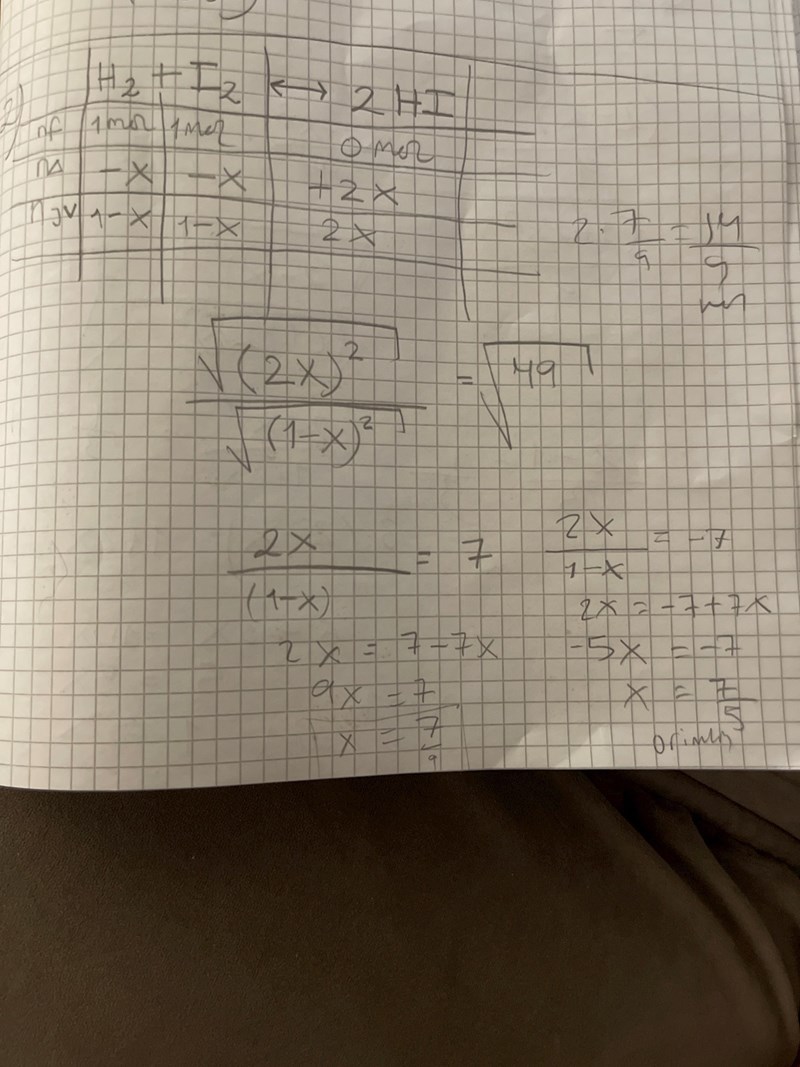 2) H₂ + I₂ ↔ 2 HI
nf 1mol 1mol 0 mol
ns -x -x +2x
njv 1-x 1-x 2x
2·7/9 = 14/9
√(2x)² / √(1-x)² = √49
2x/(1-x) = 7
2x = 7-7x
9x = 7
x = 7/9
2x/1-x = -7
2x = -7+7x
-5x = -7
x = 7/5
orimlig